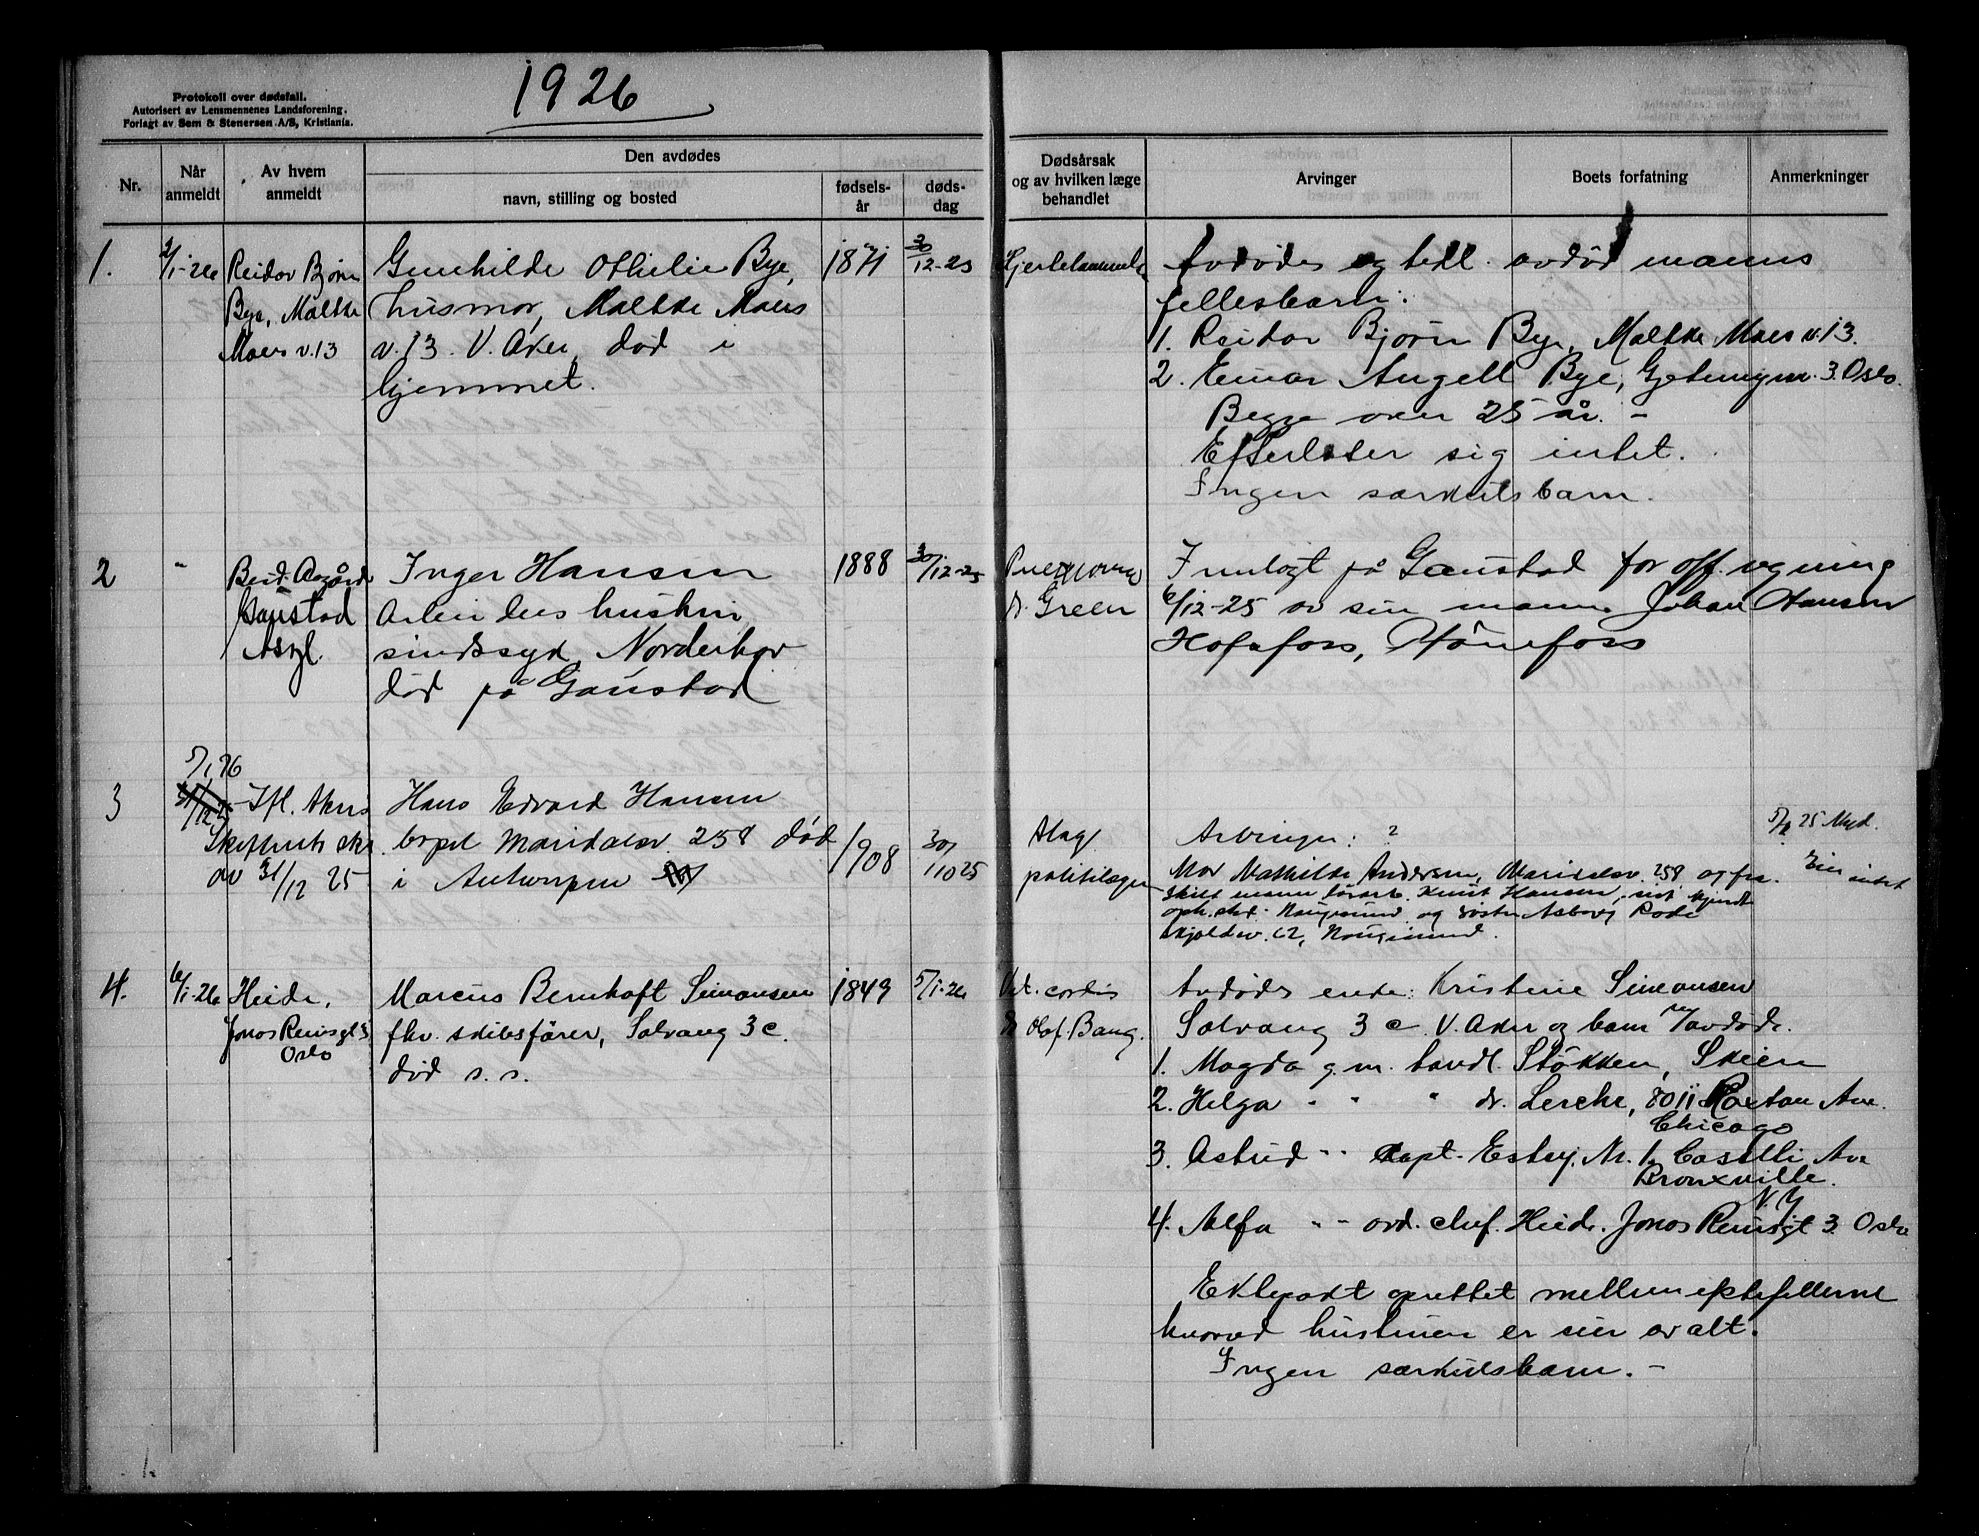 1926
Protokoll over dødsfall.
Autorisert av Lensmennenes Landsforening.
Forlagt av Sem & Stenersen A/S, Kristiania.
Nr.
Når anmeldt
Av hvem anmeldt
Den avdødes
navn, stilling og bosted
fødsels-år
døds-dag
Dødsårsak og av hvilken læge behandlet
Arvinger
Boets forfatning
Anmerkninger
1.
2/1-26
Reidar Bjørn
Bye, Moltke
Moes v. 13
Gunhilde Othilie Bye,
husmor, Moltke Moes
v. 13. V. Aker, død i
hjemmet.
1871
30/12-25
Hjertelammelse
Avdødes og tidl. avdød manns
fellesbarn:
1. Reidar Bjørn Bye, Moltke Moes v. 13.
2. Einar Angell Bye, 3. Oslo.
Begge over 25 år. -
Efterlater sig intet.
Ingen særkulsbarn.
2
"
Best. Aagård
Gaustad
Asyl.
Inger Hansen
Arbeiders hustru,
sindssyk, Norderhov
død på Gaustad
1888
30/12-25
Pneumonia
dr. Green
Innlagt på Gaustad for off. regning
6/12-25 av sin mann Johan Hansen
Hofsfoss, Hønefoss
3
5/1 26
31/12 25
Ifl. Akers
Skifterets skr.
av 31/12 25
Hans Edvard Hansen
Maridalsv. 258 død
i Antwerpen
1908
30/10 25
Slag
politilægen
Arvinger: ?
Mor Mathilde Andersen, Maridalsv. 258 og fra-
skilt mann Knut Hansen, sist kjendt
oph. sted Haugesund og søster Aasborg Rode
Skjoldav. 62, Haugesund.
25 Myd.
Eier intet
4.
6/1-26
Heide,
Jonas Reinsgt 3
Oslo
Marcus Bernhoft Simonsen
fhv. skibsfører, Solvang 3 c.
død s. s.
1849
5/1-26
Vit. cordis
dr Olaf Bang.
Avdødes enke: Kristine Simonsen
Solvang 3 c. V. Aker og barn m/avdøde.
1. Magda g. m. tandl. Stokken, Skien
2. Helga " " " dr. Lerche, 8011 Paxton Ave.
Chicago
3. Astrid " " capt. Esbey, Nr. 1, Coselli Ave
Bronxville.
N.Y
4. Alfa " " ord. chef. Heide. Jonas Reinsgt 3. Oslo
Ektepakt oprettet mellem ektefellerne
hvorved hustruen er eier av alt.
Ingen særkulsbarn. -